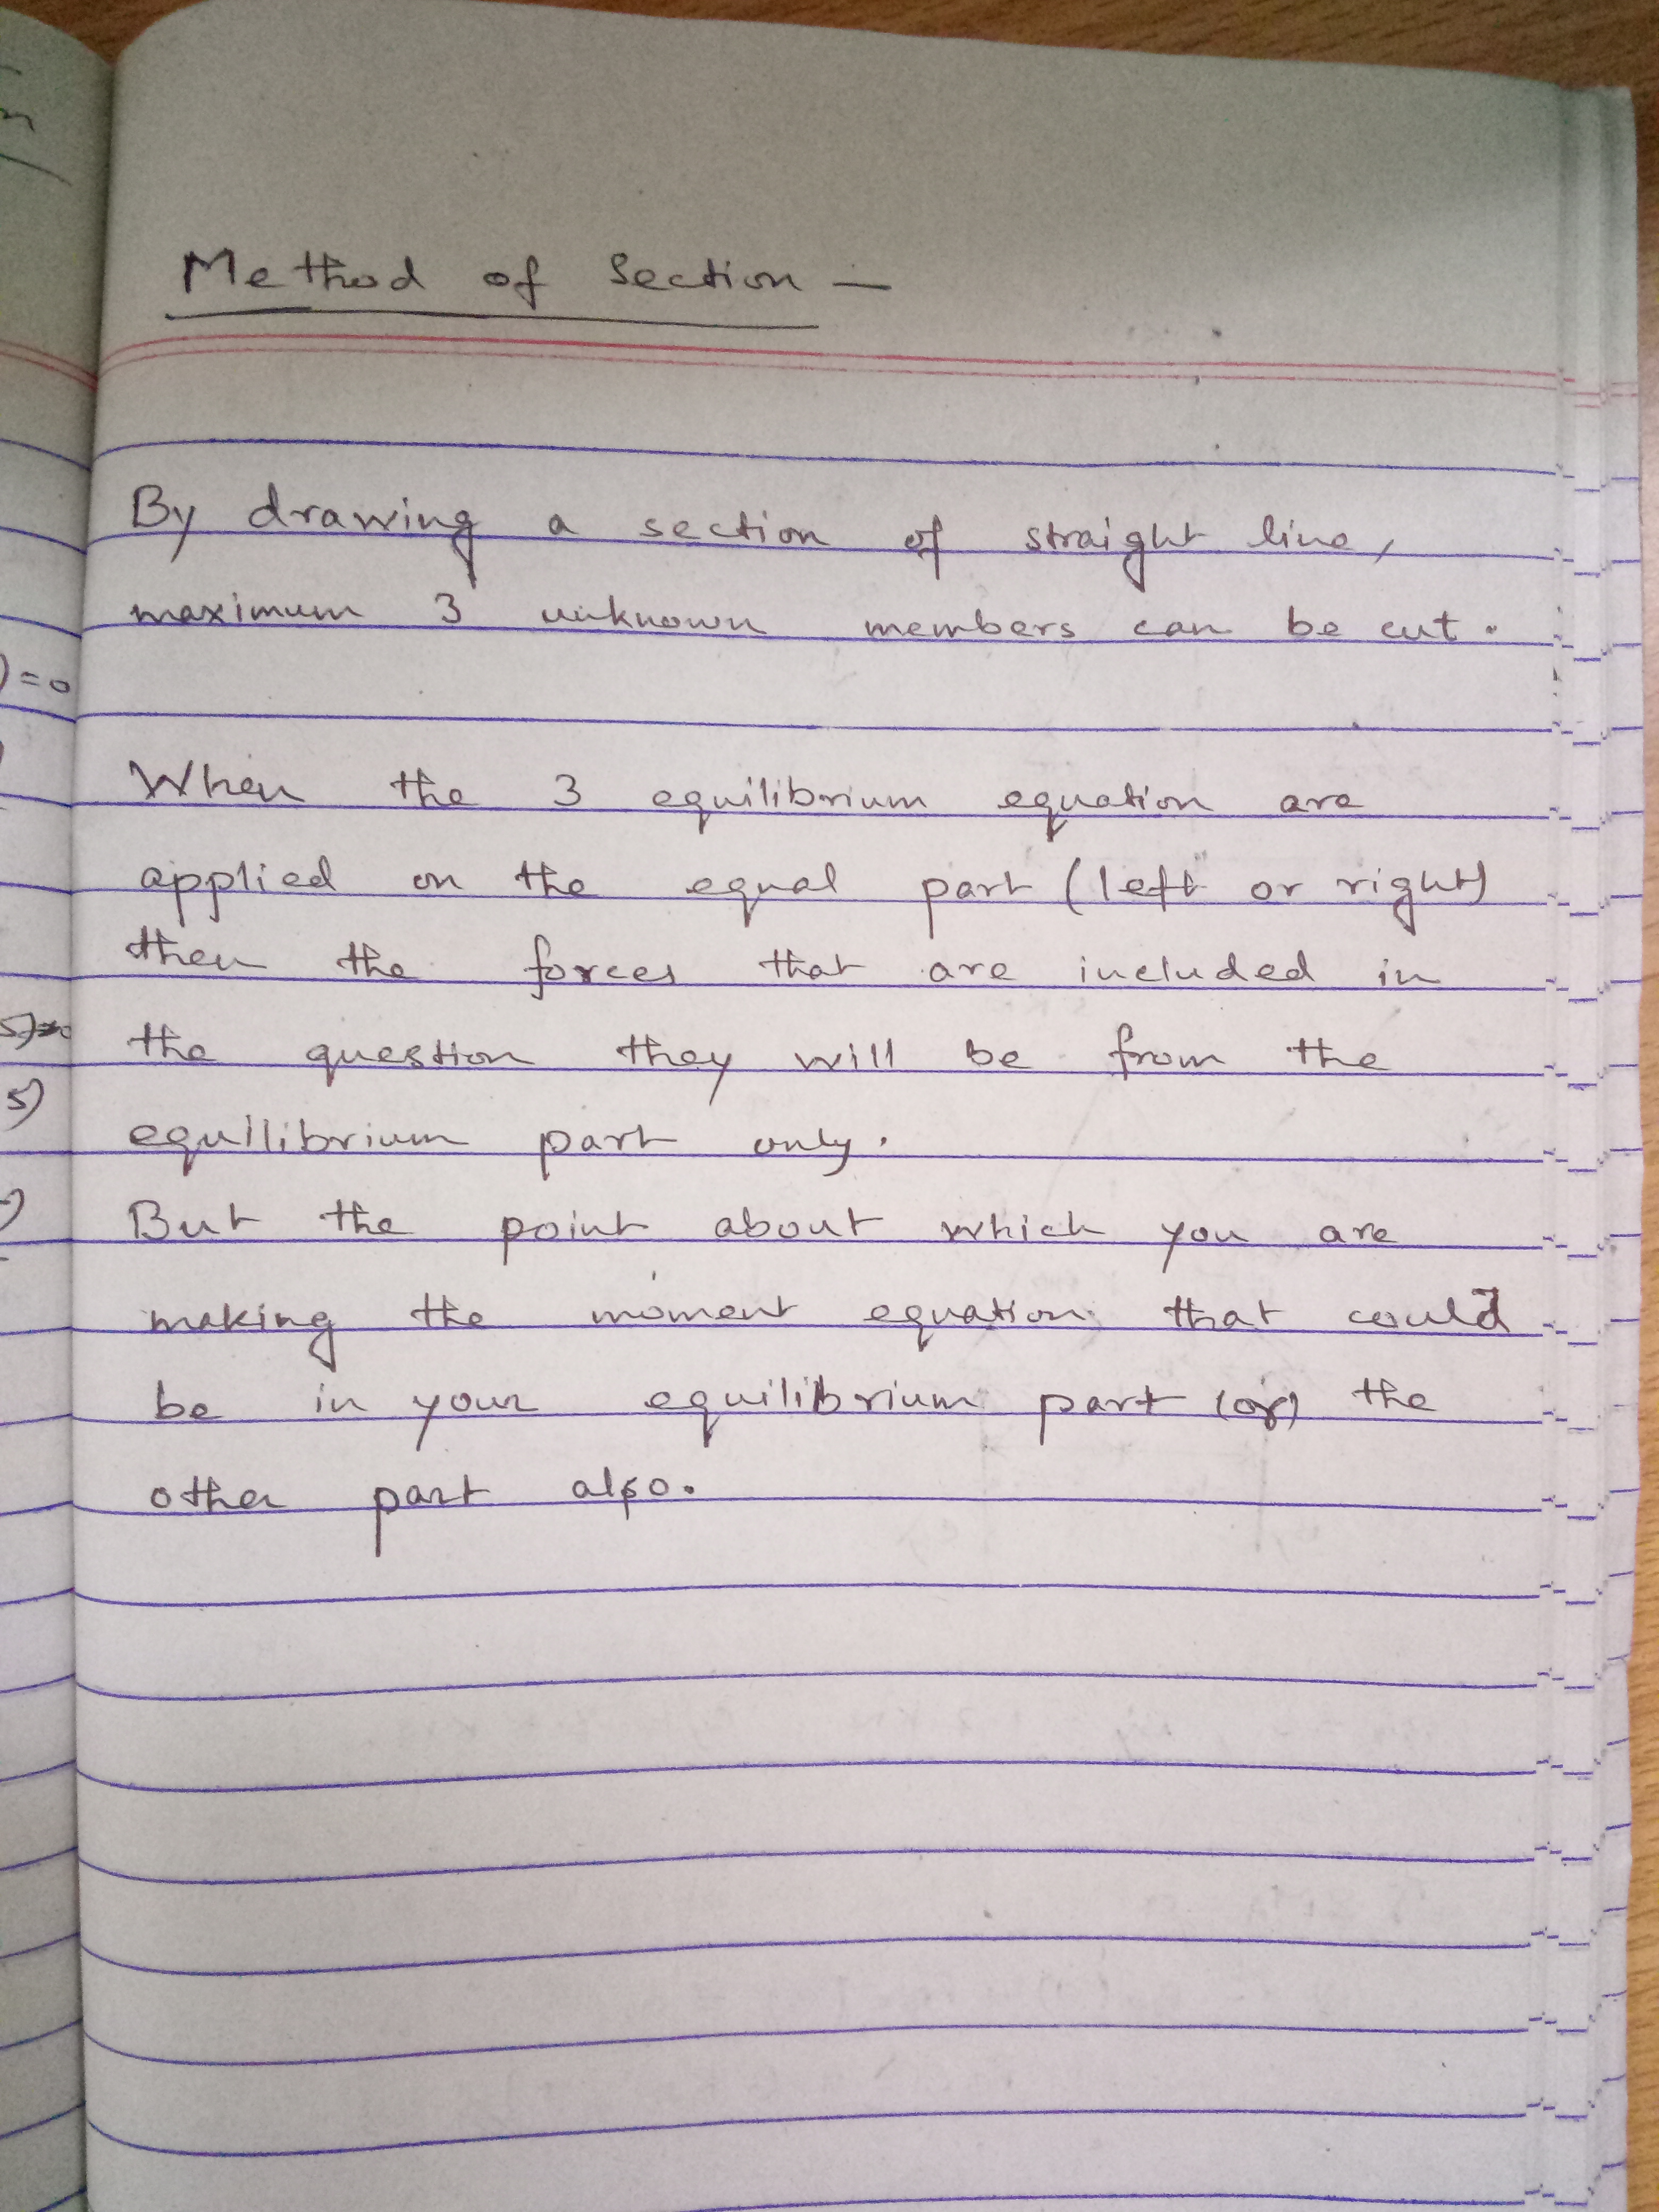 Method of Section —
By drawing a section of straight line,
maximum 3 unknown members can be cut.
When the 3 equilibrium equation are
applied on the equal part (left or right)
then the forces that are included in
the question they will be from the
equilibrium part only.
But the point about which you are
making the moment equation that could
be in your equilibrium part (or) the
other part also.
)=0
5)